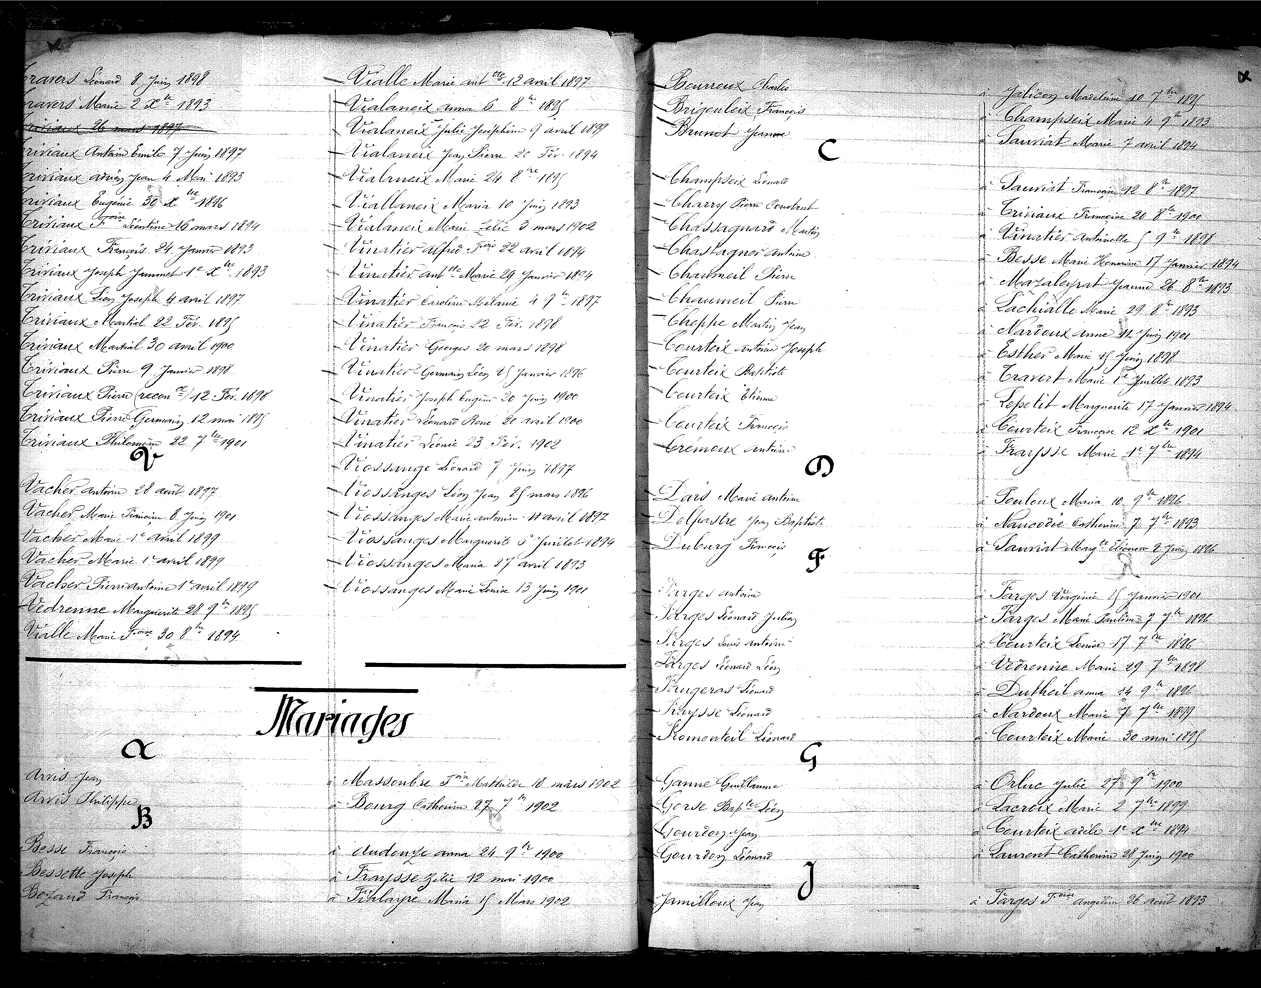 Travers Léonard 8 Juin 1898
Travers Marie 2 Xbre 1893
Triviaux 26 mars 1897
Triviaux Antoine Emile 7 Juin 1897
Triviaux Jean 4 Mai 1893
Triviaux Eugénie 30 Xbre 1896
Triviaux Fçoise Léontine 16 mars 1894
Triviaux François 24 Janvier 1893
Triviaux Joseph Jammet 1er Xbre 1893
Triviaux Léon Joseph 4 avril 1897
Triviaux Martial 22 Fév. 1895
Triviaux Martial 30 avril 1900
Triviaux Pierre 9 Janvier 1898
Triviaux Pierre (recon ce) 12 Fév. 1898
Triviaux Pierre Germain, 12 mai 1895
Triviaux Philomène 22 7bre 1901
V
Vacher Antoine 28 août 1897
Vacher Marie Françoise 8 Juin 1901
Vacher Marie 1er avril 1899
Vacher Marie 1er avril 1899
Vacher Pierre Antoine 1er avril 1899
Vedrenne Marguerite 28 9bre 1895
Vialle Marie Fçoise 30 8bre 1894
Vialle Marie Antte 12 avril 1897
Vialaneix Anna 6 8bre 1895
Vialaneix Julie Joséphine 9 avril 1899
Vialaneix Jean Pierre 20 Fév. 1894
Vialaneix Marie 24 8bre 1895
Viallaneix Maria 10 Juin 1893
Vialaneix Marie Zélie 3 mars 1902
Vinatier Alfred Fçois 22 avril 1894
Vinatier Antte Marie 29 Janvier 1894
Vinatier Caroline Mélanie 4 9bre 1897
Vinatier François 22 Fév. 1898
Vinatier Georges 20 mars 1898
Vinatier Germain Léon 25 Janvier 1896
Vinatier Joseph Eugène 20 Juin 1900
Vinatier Léonard René 20 avril 1900
Vinatier Léonie 23 Fév. 1902
Viossange Léonard 7 Juin 1897
Viossanges Léon Jean 25 mars 1896
Viossanges Marie Antonine 11 avril 1897
Viossanges Marguerite 5 Juillet 1894
Viossanges Maria 27 avril 1893
Viossanges Marie Louise 13 Juin 1901
Mariages
A
Arvis Jean à Massoubre Fçoise Mathilde 10 mars 1902
Arvis Philippe à Bourg Catherine 27 7bre 1902
B
Besse François à Audouze Anna 24 9bre 1900
Bessette Joseph à Fraysse Zélie 12 mai 1900
Boyard François à Maria 15 Mars 1902
Bourroux Charles à Jalicon Madeleine 10 7bre 1895
Brigouleix François à Champseix Marie 4 9bre 1893
Brunot Jeanne à Sauriat Marie 7 avril 1894
C
Champseix Léonard à Sauriat Françoise 12 8bre 1897
Charry Pierre Constant à Triviaux Françoise 20 8bre 1900
Chassagnard Martin à Vinatier Antoinette 5 9bre 1898
Chastagner Antoine à Besse Marie Honorine 17 Janvier 1894
Chaumeil Pierre à Mazaleyrat Jeanne 26 8bre 1893
Chaumeil Pierre à Lachialle Marie 29 8bre 1893
Cheppe Martin Jean à Nardoux Anna 11 Juin 1901
Courteix Antoine Joseph à Esther Marie 15 Juin 1898
Courteix Baptiste à Travert Marie 1er Juillet 1893
Courteix Etienne à Lepetit Marguerite 17 Janvier 1894
Courteix François à Courteix Françoise 12 Xbre 1901
Crémoux Antoine à Fraysse Marie 1er 7bre 1894
D
Dars Marie Antoine à Pouloux Maria 10 9bre 1896
Delpastre Jean Baptiste à Catherine 7 7bre 1893
Duburg François à Sauriat Margte Eléonore 2 Juin 1896
F
Farges Antoine à Farges Virginie 15 Janvier 1901
Farges Léonard Julien à Farges Marie Pauline 7 7bre 1896
Farges Louis Antoine à Courteix Louise 17 7bre 1896
Farges Léonard Léon à Vedrenne Marie 29 7bre 1898
Faugeras Léonard à Dutheil Anna 24 9bre 1896
Fraysse Léonard à Nardoux Marie 7 7bre 1899
Fromonteil Léonard à Courteix Marie 30 mai 1895
G
Ganne Guillaume à Orluc Julie 27 9bre 1900
Gorse Bapte Léon à Lacroix Marie 2 7bre 1899
Gourdon Jean à Courteix Adèle 1er Xbre 1894
Gourdon Léonard à Laurent Catherine 28 Juin 1900
J
Jamilloux Jean à Farges Fçoise Angéline 26 août 1893